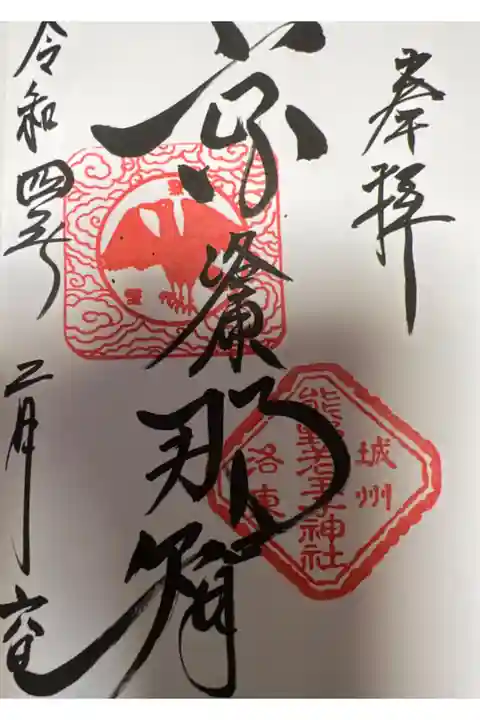 奉拝
京洛東那智
令和四年二月六日
城州
熊野若王子神社
洛東